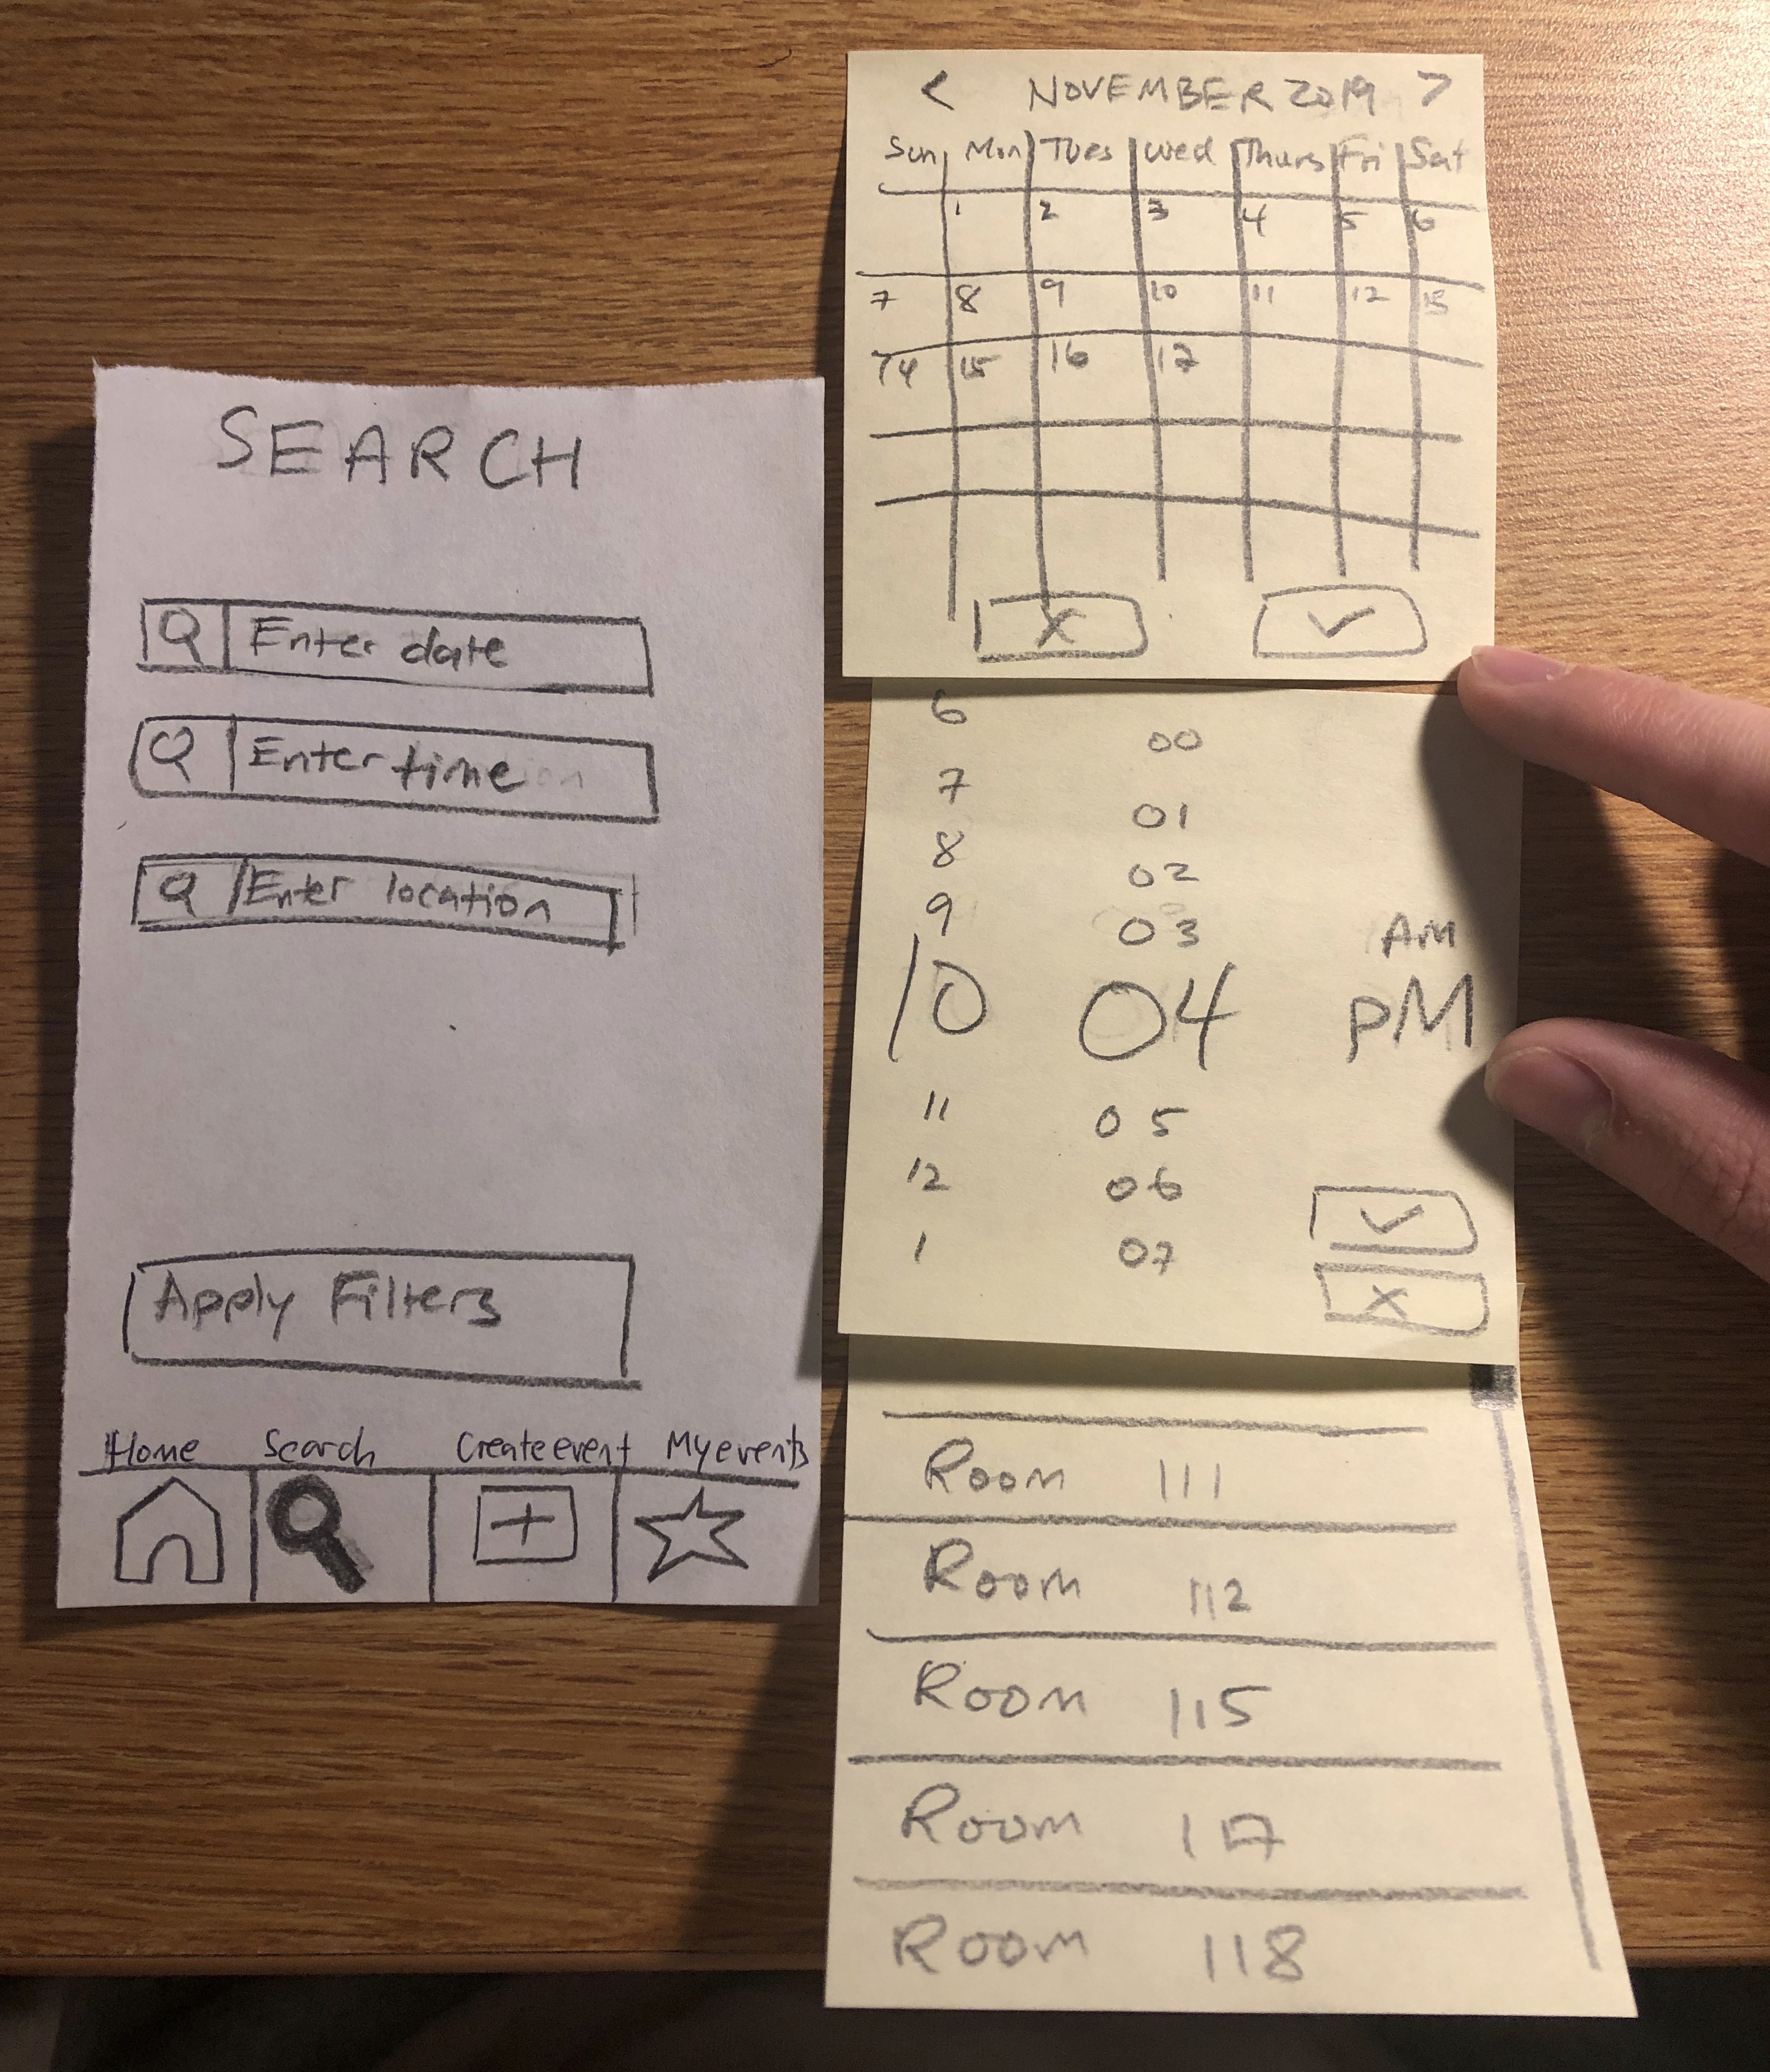 SEARCH
Enter date
Enter time
Enter location
Apply Filters
Home Search Create event My events
< NOVEMBER 2019 >
Sun Mon Tues Wed Thurs Fri Sat
1 2 3 4 5 6
7 8 9 10 11 12 13
14 15 16 17
X ✓
6 00
7 01
8 02
9 03 AM
10 04 PM
11 05
12 06
1 07
✓
X
Room 111
Room 112
Room 115
Room 117
Room 118